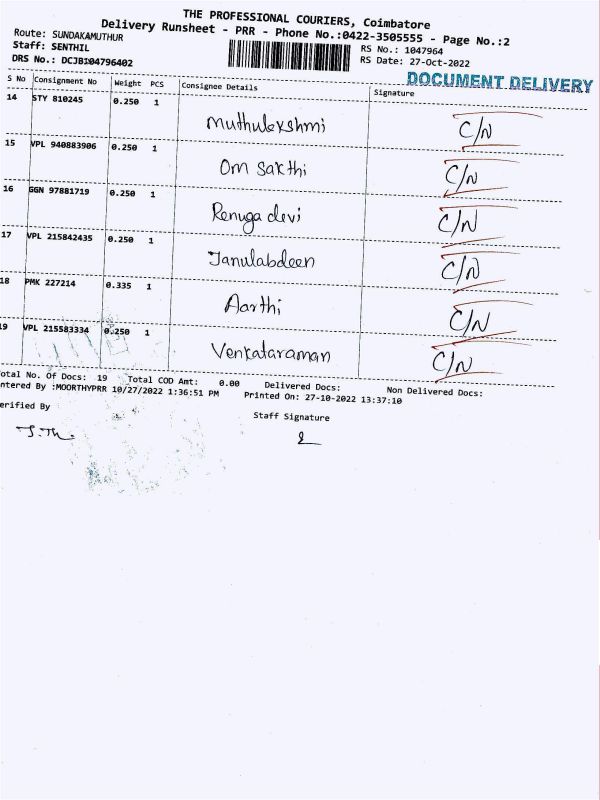 THE PROFESSIONAL COURIERS, Coimbatore
Delivery Runsheet - PRR - Phone No.:0422-3505555 - Page No.:2
Route: SUNDAKAMUTHUR
RS No.: 1047964
Staff: SENTHIL
RS Date: 27-Oct-2022
DRS No.: DCJB104796402
DOCUMENT DELIVERY
S No Consignment No Weight PCS Consignee Details Signature
14 STY 810245 0.250 1 Muthulekshmi C/N
15 VPL 940883906 0.250 1 Om Sakthi C/N
16 GGN 97881719 0.250 1 Renuga devi C/N
17 VPL 215842435 0.250 1 Janulabdeen C/N
18 PMK 227214 0.335 1 Aarthi C/N
19 VPL 215583334 0.250 1 Venkataraman C/N
otal No. Of Docs: 19 Total COD Amt: 0.00 Delivered Docs: Non Delivered Docs:
ntered By :MOORTHYPRR 10/27/2022 1:36:51 PM Printed On: 27-10-2022 13:37:10
erified By Staff Signature